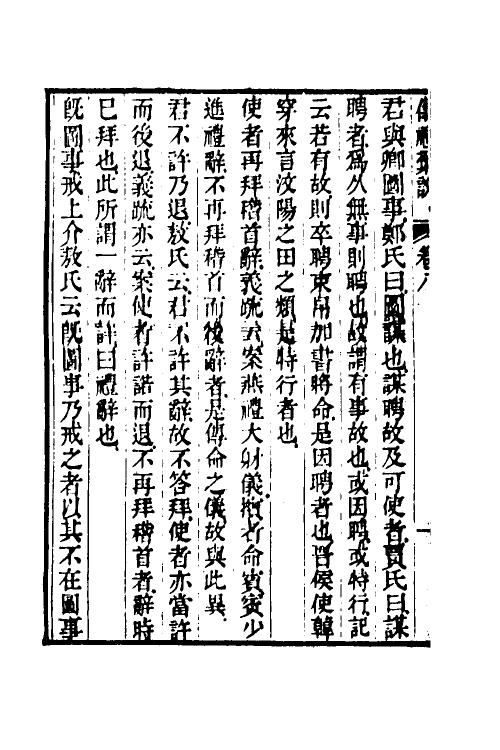 儀禮集說 卷八 一
君與卿圖事鄭氏曰圖謀也謀聘故及可使者賈氏曰謀
聘者爲久無事則聘也故謂有事故也或因聘或特行記
云若有故則卒聘束帛加書將命是因聘者也晉侯使韓
穿來言汶陽之田之類是特行者也
使者再拜稽首辭義疏云案燕禮大射儀擯者命賓賓少
進禮辭不再拜稽首而後辭者是傳命之儀故與此異
君不許乃退敖氏云君不許其辭故不答拜使者亦當許
而後退義疏亦云案使者許諾而退不再拜稽首者辭時
已拜也此所謂一辭而許曰禮辭也
旣圖事戒上介敖氏云旣圖事乃戒之者以其不在圖事